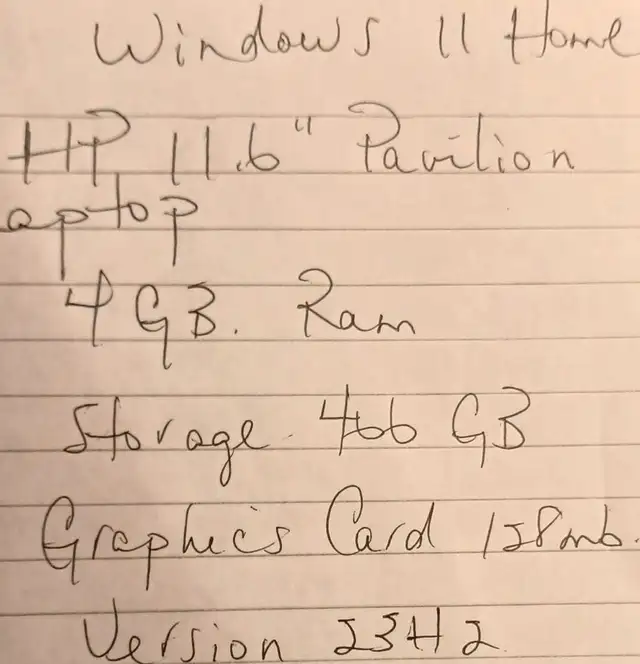 Windows 11 Home
HP 11.6" Pavilion
aptop
4 GB. Ram
Storage 466 GB
Graphics Card 128mb.
Version 23H2